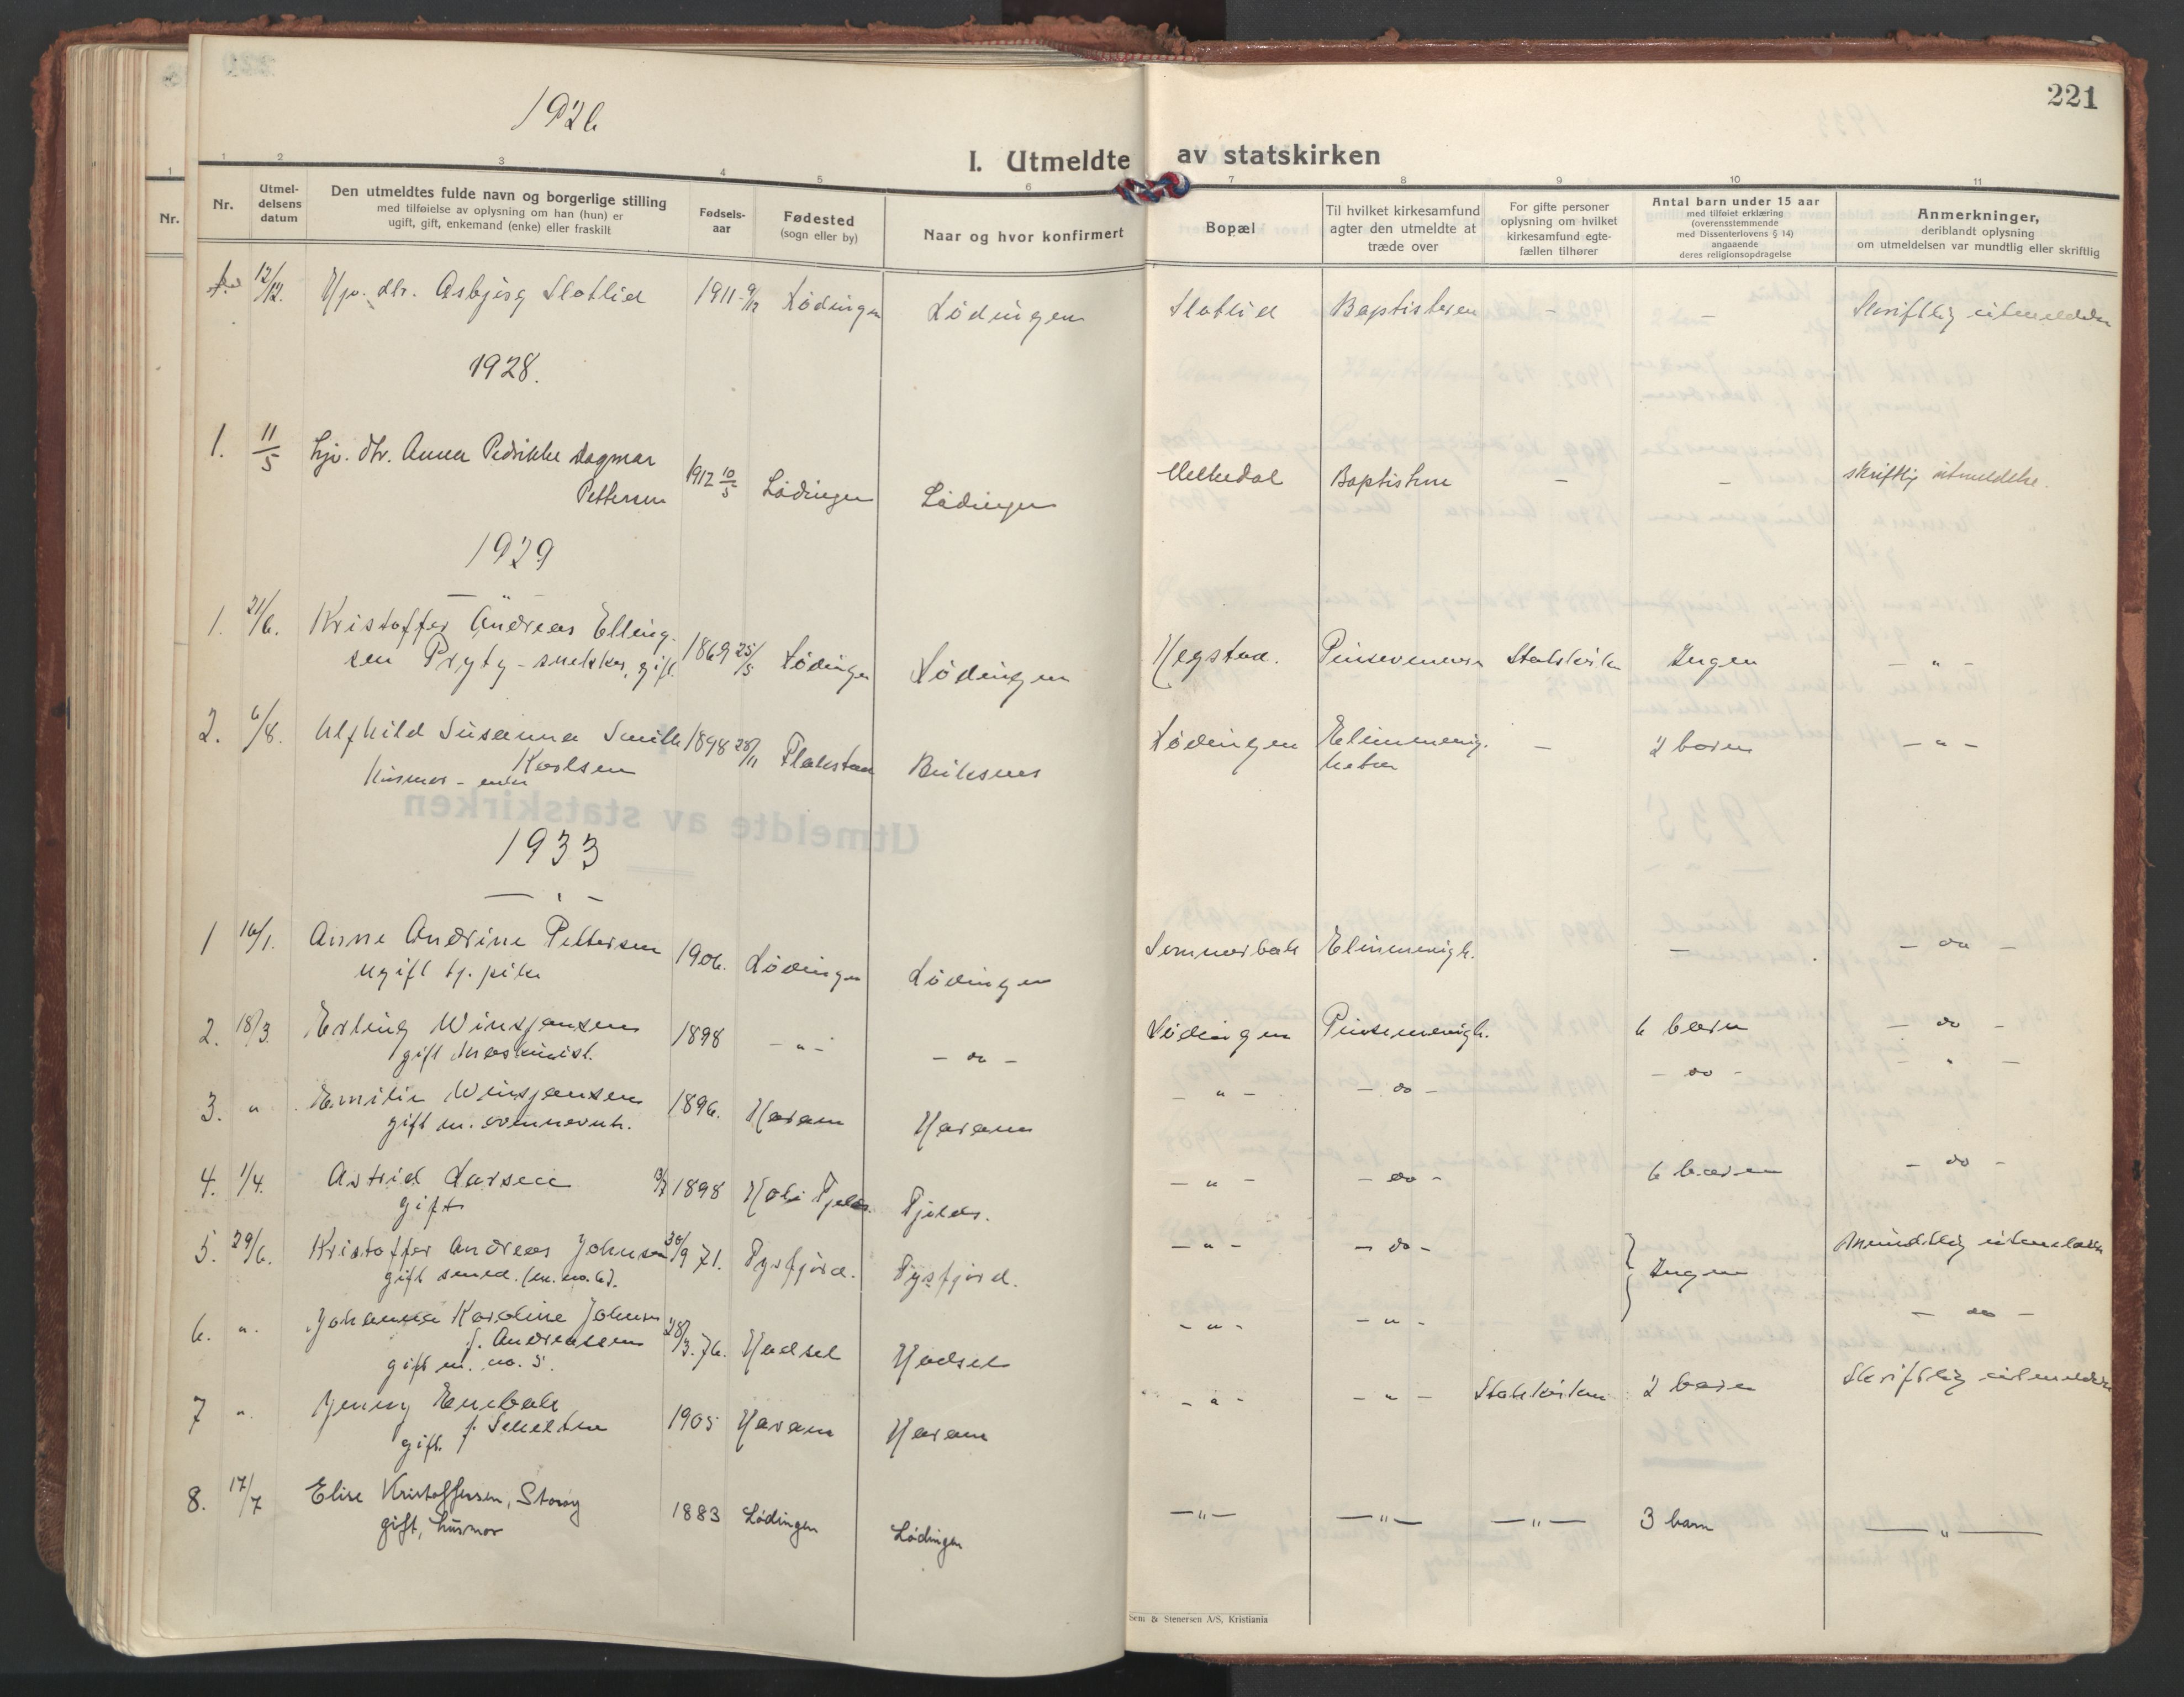 221
1926
I. Utmeldte av statskirken
1 2 3 4 5 6 7 8 9 10 11
Nr.
Nr.
Utmel-
delsens
datum
Den utmeldtes fulde navn og borgerlige stilling
med tilføielse av oplysning om han (hun) er
ugift, gift, enkemand (enke) eller fraskilt
Fødsels-
aar
Fødested
(sogn eller by)
Naar og hvor konfirmert
Bopæl
Til hvilket kirkesamfund
agter den utmeldte at
træde over
For gifte personer
oplysning om hvilket
kirkesamfund egte-
fællen tilhører
Antal barn under 15 aar
med tilføiet erklæring
(overensstemmende
med Dissenterlovens § 14)
angaaende
deres religionsopdragelse
Anmerkninger,
deriblandt oplysning
om utmeldelsen var mundtlig eller skriftlig
12/12. Hjv. dtr. Asbjørg Slotlid 1911 9/12 Lødingen Lødingen Slotlid Baptisterne - - Skriftlig utmeldelse
1928.
1. 11/5 Hjv. dtr. Anna Pedrikke Dagmar
Pettersen 1912 10/5 Lødingen Lødingen Melkedal Baptistene - - skriftlig utmeldelse.
1929
1. 21/6. Kristoffer Andreas Elling-
sen Prytz - snekker, gift. 1869 25/5 Lødingen Lødingen Hegstad. Pinsevennene Statskirken Ingen - " -
2. 6/8. Alfhild Susanna Smith
Karlsen
Husmor - enke 1898 28/11 Flakstad Buksnes Lødingen Elimmenig-
heten - 2 barn - " -
1933
1 16/1. Anne Andrine Pettersen
ugift tj. pike 1906. Lødingen Lødingen Sommerbak Elimmenigh. - - do -
2. 18/3. Erling Winsjansen
gift Maskinist. 1898 - " - - do - Lødingen Pinsemenigh. 6 barn - do -
3. " Emilie Winsjansen
gift m. ovennevnte. 1896. Haram Haram - " - - do - - do - - " -
4. 1/4. Astrid Larsen
gift 1898 Hol i Tjelds. Tjelds. - " - - do - 6 barn - do -
5. 29/6. Kristoffer Andreas Johnsen
gift smed. (m. no. 6). 30/9 71. Tysfjord. Tysfjord. - " - - do - Ingen Mundtlig utmeldelse
6. " Johanna Karoline Johnsen
f. Andreassen
gift m. no. 5. 28/3. 76. Hadsel Hadsel - " - - " - - do -
7 " Jenny Enebak
gift. f. 1905 Haram Haram - " - - " - Statskirken 2 barn Skriftlig utmeldelse
8. 17/7 Elise Kristoffersen, Storøy
gift, husmor 1883 Lødingen Lødingen - " - - " - - " - 3 barn - " -
Sem & Stenersen A/S, Kristiania